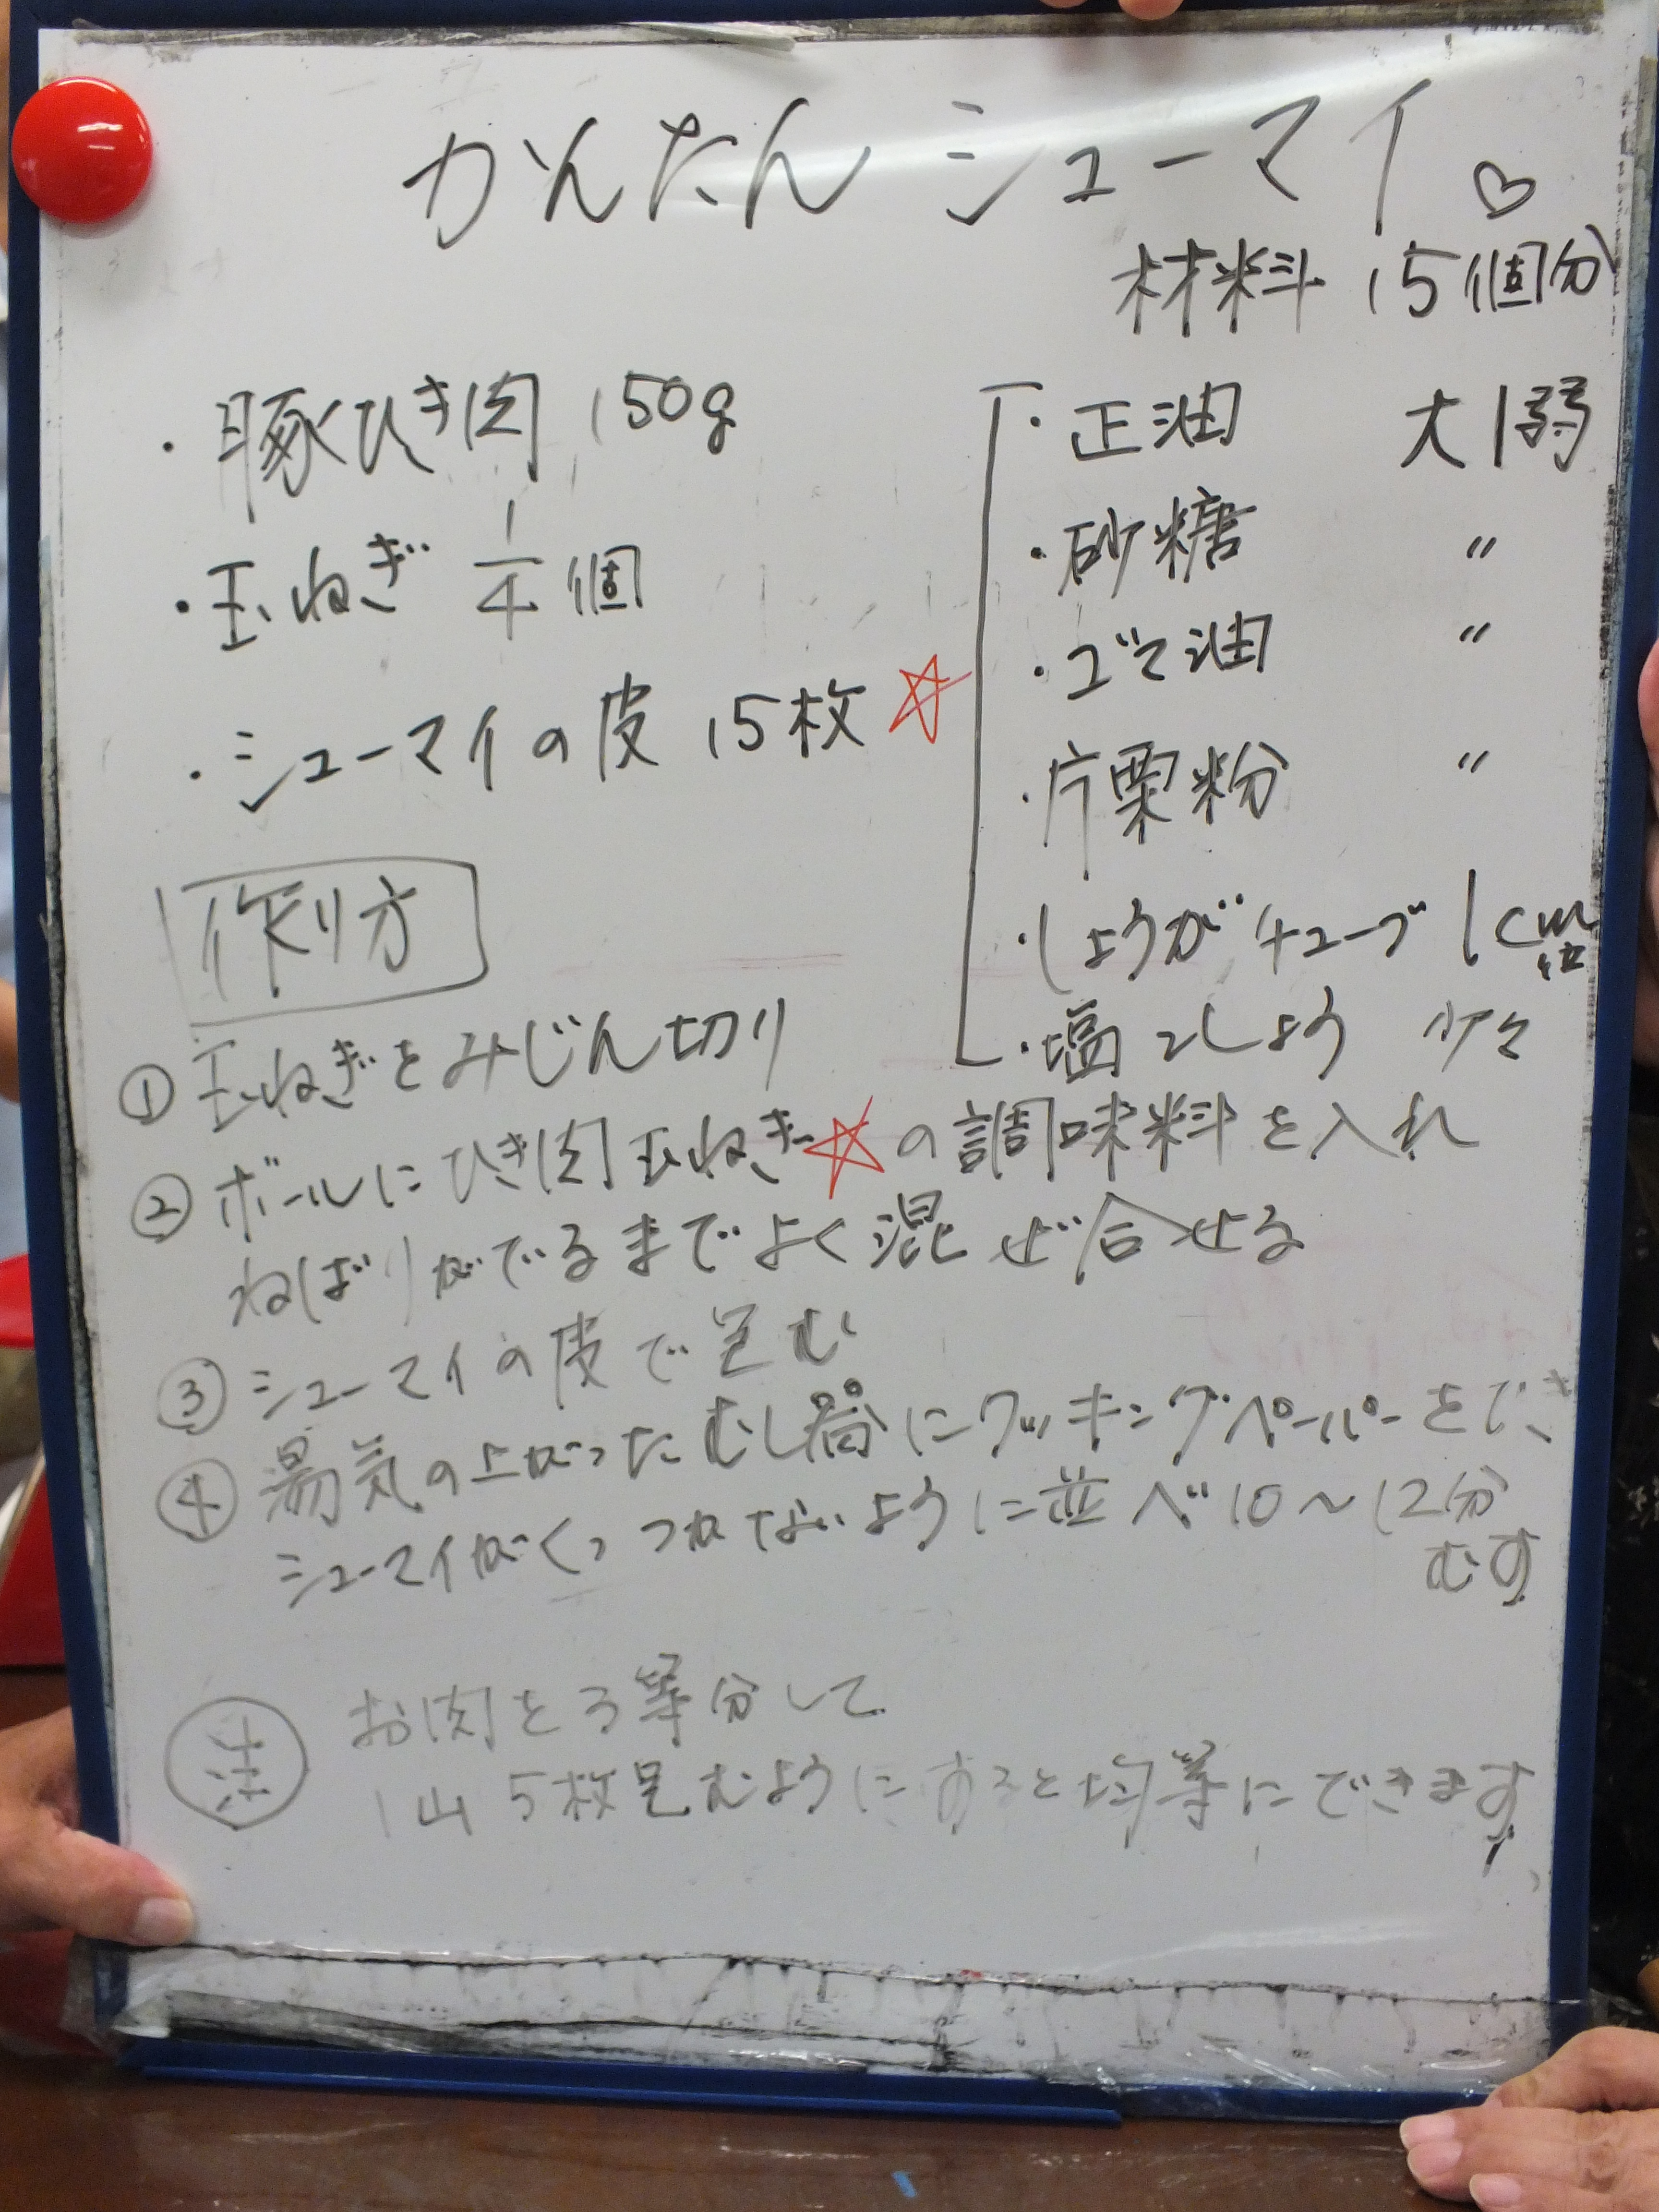 かんたんシューマイ♡
材料 15個分
・豚ひき肉 150g
・玉ねぎ 1/4個
・シューマイの皮 15枚
☆
・正油 大1弱
・砂糖 〃
・ゴマ油 〃
・片栗粉 〃
・しょうがチューブ 1cm位
・塩こしょう 少々
作り方
① 玉ねぎをみじん切り
② ボールにひき肉玉ねぎ☆の調味料を入れ
ねばりがでるまでよく混ぜ合せる
③ シューマイの皮で包む
④ 湯気の上がったむし器にクッキングペーパーをひき
シューマイがくっつかないように並べ10〜12分
むす
注 お肉を3等分して
1山5枚包むようにすると均等にできます